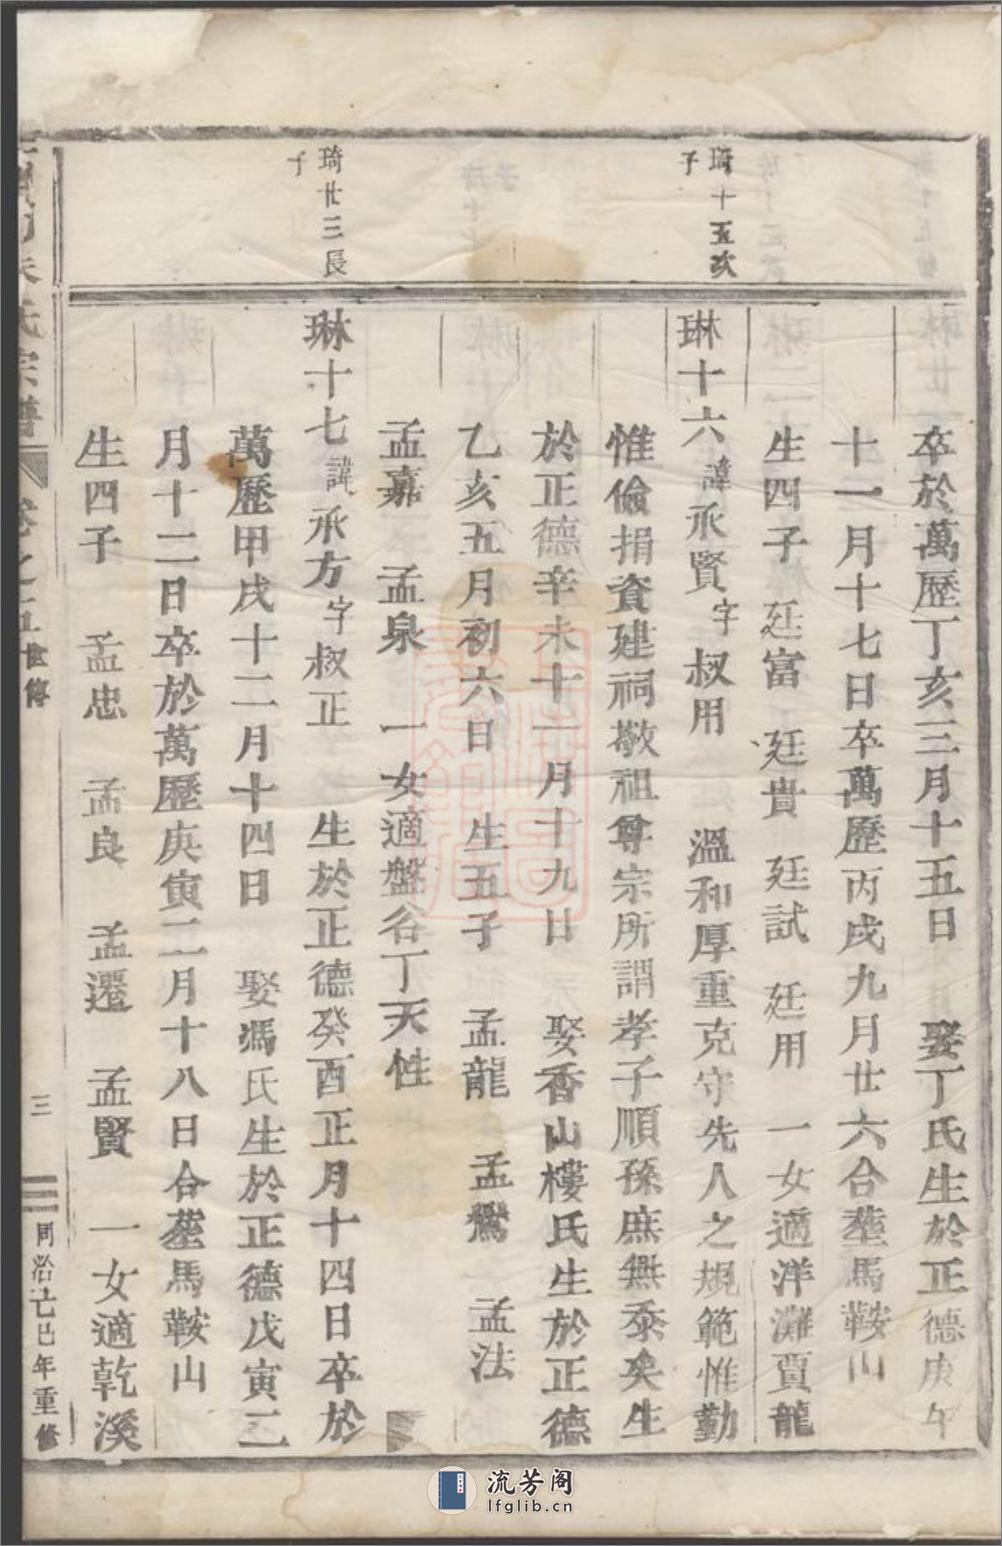 卒於萬歷丁亥三月十五日　娶丁氏生於正德庚午
十一月十七日卒萬歷丙戌九月廿六合塟馬鞍山
生四子　廷富　廷貴　廷試　廷用　一女適洋灘賈龍
琦十五次
子
琳十六諱承賢字叔用　溫和厚重克守先人之規範惟勤
惟儉捐資建祠敬祖尊宗所謂孝子順孫庶無忝矣生
於正德辛未十二月十九日　娶香山樓氏生於正德
乙亥五月初六日　生五子　孟龍　孟鸞　孟法
孟嘉　孟泉　一女適盤谷丁天性
琦廿三長
子
琳十七諱承方字叔正　生於正德癸酉正月十四日卒於
萬歷甲戌十二月十四日　娶馮氏生於正德戊寅二
月十二日卒於萬歷庚寅二月十八日合塟馬鞍山
生四子　孟忠　孟良　孟遷　孟賢　一女適乾溪
氏宗譜　卷之五　世傳　三　同治己巳年重修
流芳阁
lfglib.cn